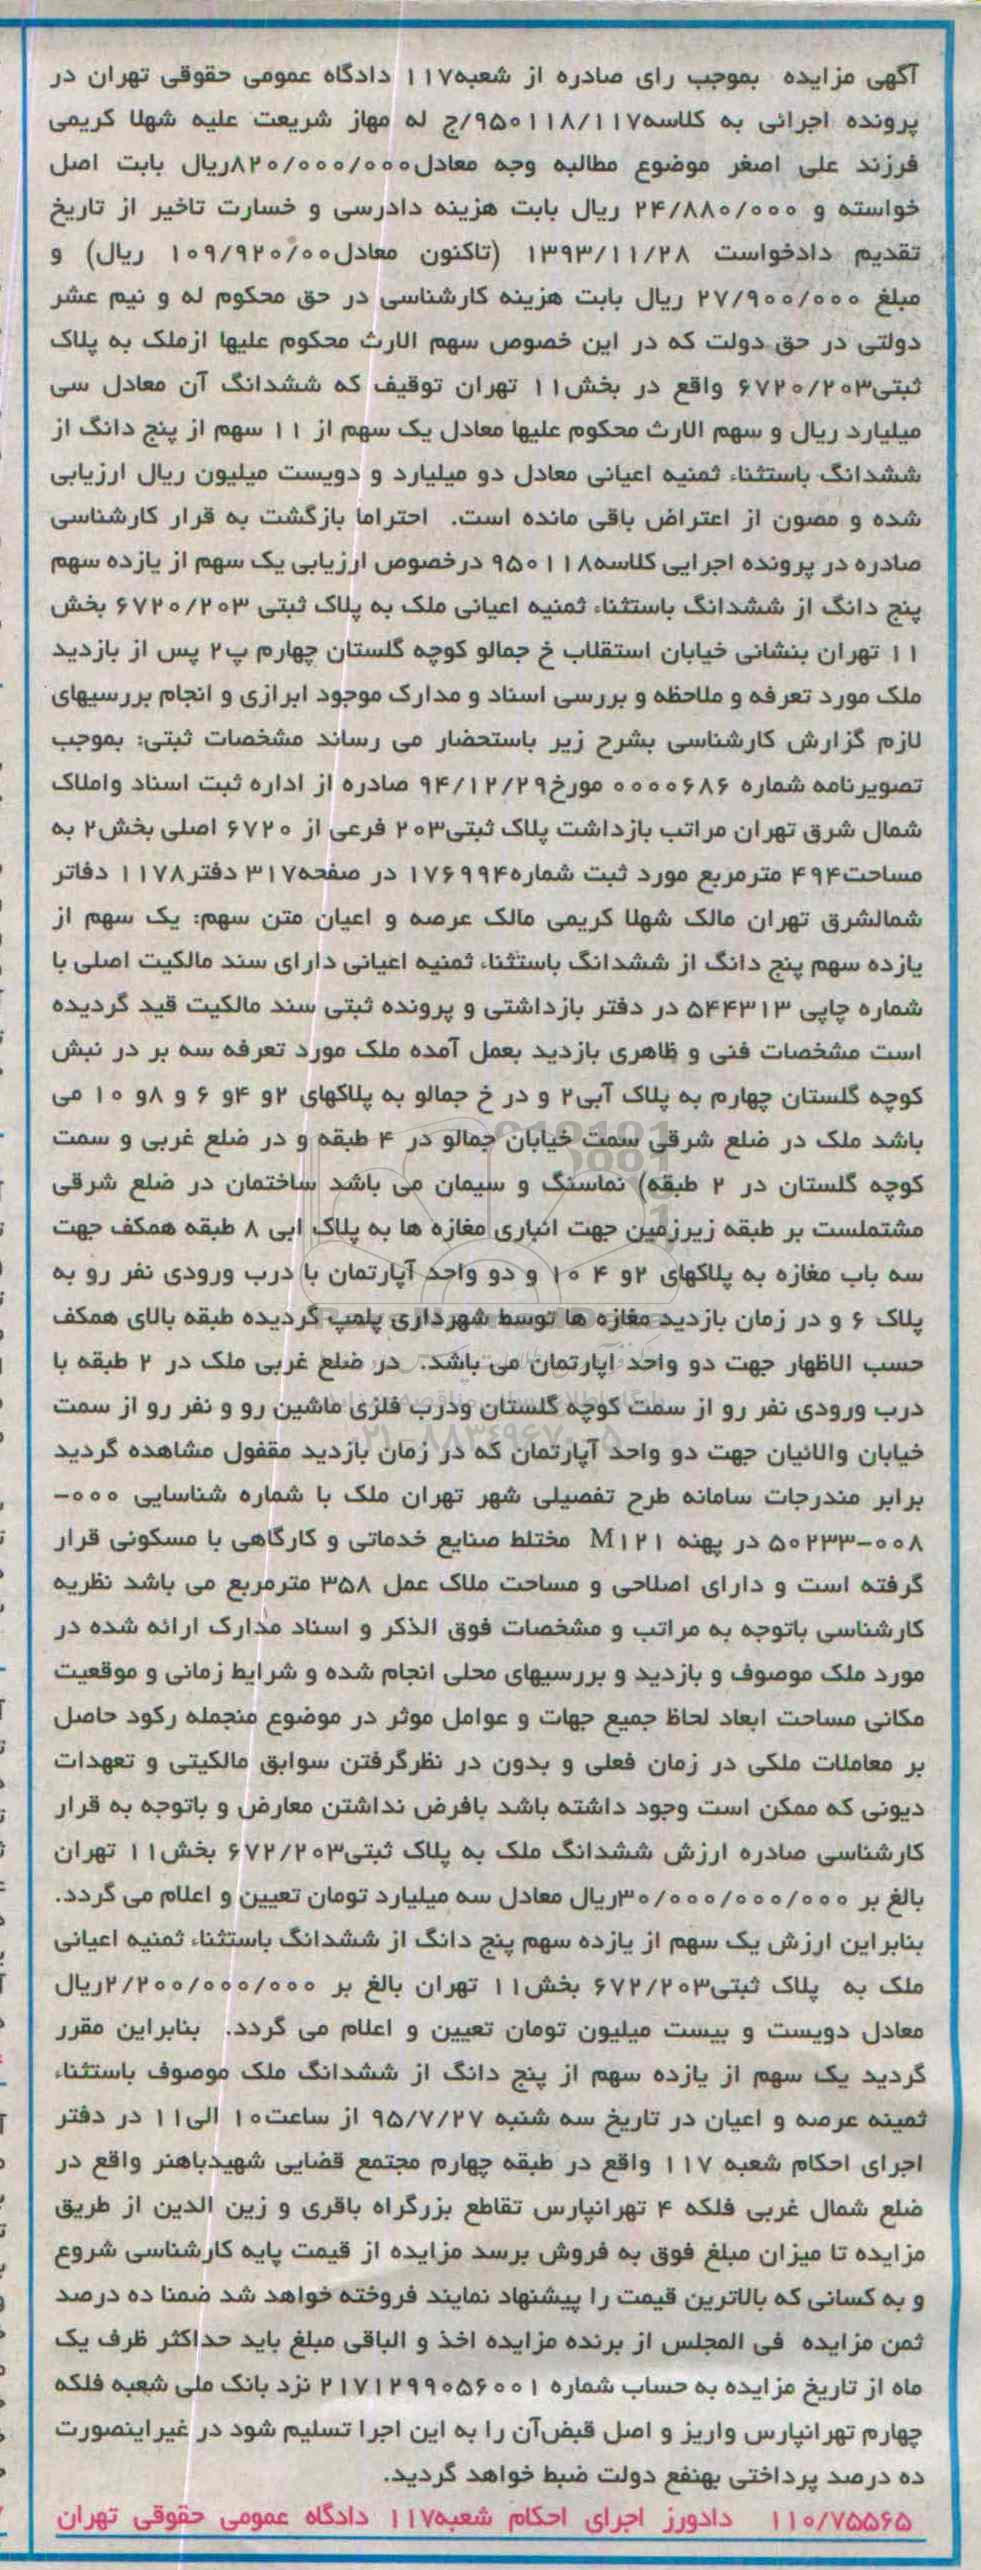 آگهی مزایده بموجب رای صادره از شعبه۱۱۷ دادگاه عمومی حقوقی تهران در
پرونده اجرائی به کلاسه۹۵۰۱۱۸/۱۱۷/ج له مهاز شریعت علیه شهلا کریمی
فرزند علی اصغر موضوع مطالبه وجه معادل۸۲۰/۰۰۰/۰۰۰ریال بابت اصل
خواسته و ۲۴/۸۸۰/۰۰۰ ریال بابت هزینه دادرسی و خسارت تاخیر از تاریخ
تقدیم دادخواست ۱۳۹۳/۱۱/۲۸ (تاکنون معادل۱۰۹/۹۲۰/۰۰ ریال) و
مبلغ ۲۷/۹۰۰/۰۰۰ ریال بابت هزینه کارشناسی در حق محکوم له و نیم عشر
دولتی در حق دولت که در این خصوص سهم الارث محکوم علیها ازملک به پلاک
ثبتی۶۷۲۰/۲۰۳ واقع در بخش۱۱ تهران توقیف که ششدانگ آن معادل سی
میلیارد ریال و سهم الارث محکوم علیها معادل یک سهم از ۱۱ سهم از پنج دانگ از
ششدانگ باستثناء ثمنیه اعیانی معادل دو میلیارد و دویست میلیون ریال ارزیابی
شده و مصون از اعتراض باقی مانده است. احتراما بازگشت به قرار کارشناسی
صادره در پرونده اجرایی کلاسه۹۵۰۱۱۸ درخصوص ارزیابی یک سهم از یازده سهم
پنج دانگ از ششدانگ باستثناء ثمنیه اعیانی ملک به پلاک ثبتی ۶۷۲۰/۲۰۳ بخش
۱۱ تهران بنشانی خیابان استقلاب خ جمالو کوچه گلستان چهارم پ۲ پس از بازدید
ملک مورد تعرفه و ملاحظه و بررسی اسناد و مدارک موجود ابرازی و انجام بررسیهای
لازم گزارش کارشناسی بشرح زیر باستحضار می رساند مشخصات ثبتی: بموجب
تصویرنامه شماره ۰۰۰۰۶۸۶ مورخ۹۴/۱۲/۲۹ صادره از اداره ثبت اسناد واملاک
شمال شرق تهران مراتب بازداشت پلاک ثبتی۲۰۳ فرعی از ۶۷۲۰ اصلی بخش۲ به
مساحت۴۹۴ مترمربع مورد ثبت شماره۱۷۶۹۹۴ در صفحه۳۱۷ دفتر۱۱۷۸ دفاتر
شمالشرق تهران مالک شهلا کریمی مالک عرصه و اعیان متن سهم: یک سهم از
یازده سهم پنج دانگ از ششدانگ باستثناء ثمنیه اعیانی دارای سند مالکیت اصلی با
شماره چاپی ۵۴۴۳۱۳ در دفتر بازداشتی و پرونده ثبتی سند مالکیت قید گردیده
است مشخصات فنی و ظاهری بازدید بعمل آمده ملک مورد تعرفه سه بر در نبش
کوچه گلستان چهارم به پلاک آبی۲ و در خ جمالو به پلاکهای ۲و ۴و ۶ و ۸و ۱۰ می
باشد ملک در ضلع شرقی سمت خیابان جمالو در ۴ طبقه و در ضلع غربی و سمت
کوچه گلستان در ۲ طبقه) نماسنگ و سیمان می باشد ساختمان در ضلع شرقی
مشتملست بر طبقه زیرزمین جهت انباری مغازه ها به پلاک ابی ۸ طبقه همکف جهت
سه باب مغازه به پلاکهای ۲و ۴ ۱۰ و دو واحد آپارتمان با درب ورودی نفر رو به
پلاک ۶ و در زمان بازدید مغازه ها توسط شهرداری پلمپ گردیده طبقه بالای همکف
حسب الاظهار جهت دو واحد اپارتمان می باشد. در ضلع غربی ملک در ۲ طبقه با
درب ورودی نفر رو از سمت کوچه گلستان ودرب فلزی ماشین رو و نفر رو از سمت
خیابان والائیان جهت دو واحد آپارتمان که در زمان بازدید مقفول مشاهده گردید
برابر مندرجات سامانه طرح تفصیلی شهر تهران ملک با شماره شناسایی ۰۰۰-
۵۰۲۳۳-۰۰۸ در پهنه M۱۲۱ مختلط صنایع خدماتی و کارگاهی با مسکونی قرار
گرفته است و دارای اصلاحی و مساحت ملاک عمل ۳۵۸ مترمربع می باشد نظریه
کارشناسی باتوجه به مراتب و مشخصات فوق الذکر و اسناد مدارک ارائه شده در
مورد ملک موصوف و بازدید و بررسیهای محلی انجام شده و شرایط زمانی و موقعیت
مکانی مساحت ابعاد لحاظ جمیع جهات و عوامل موثر در موضوع منجمله رکود حاصل
بر معاملات ملکی در زمان فعلی و بدون در نظرگرفتن سوابق مالکیتی و تعهدات
دیونی که ممکن است وجود داشته باشد بافرض نداشتن معارض و باتوجه به قرار
کارشناسی صادره ارزش ششدانگ ملک به پلاک ثبتی۶۷۲/۲۰۳ بخش۱۱ تهران
بالغ بر ۳۰/۰۰۰/۰۰۰/۰۰۰ریال معادل سه میلیارد تومان تعیین و اعلام می گردد.
بنابراین ارزش یک سهم از یازده سهم پنج دانگ از ششدانگ باستثناء ثمنیه اعیانی
ملک به پلاک ثبتی۶۷۲/۲۰۳ بخش۱۱ تهران بالغ بر ۲/۲۰۰/۰۰۰/۰۰۰ریال
معادل دویست و بیست میلیون تومان تعیین و اعلام می گردد. بنابراین مقرر
گردید یک سهم از یازده سهم از پنج دانگ از ششدانگ ملک موصوف باستثناء
ثمینه عرصه و اعیان در تاریخ سه شنبه ۹۵/۷/۲۷ از ساعت۱۰ الی۱۱ در دفتر
اجرای احکام شعبه ۱۱۷ واقع در طبقه چهارم مجتمع قضایی شهیدباهنر واقع در
ضلع شمال غربی فلکه ۴ تهرانپارس تقاطع بزرگراه باقری و زین الدین از طریق
مزایده تا میزان مبلغ فوق به فروش برسد مزایده از قیمت پایه کارشناسی شروع
و به کسانی که بالاترین قیمت را پیشنهاد نمایند فروخته خواهد شد ضمنا ده درصد
ثمن مزایده فی المجلس از برنده مزایده اخذ و الباقی مبلغ باید حداکثر ظرف یک
ماه از تاریخ مزایده به حساب شماره ۲۱۷۱۲۹۹۰۵۶۰۰۱ نزد بانک ملی شعبه فلکه
چهارم تهرانپارس واریز و اصل قبض‌آن را به این اجرا تسلیم شود در غیراینصورت
ده درصد پرداختی بهنفع دولت ضبط خواهد گردید.
۱۱۰/۷۵۵۶۵ دادورز اجرای احکام شعبه۱۱۷ دادگاه عمومی حقوقی تهران